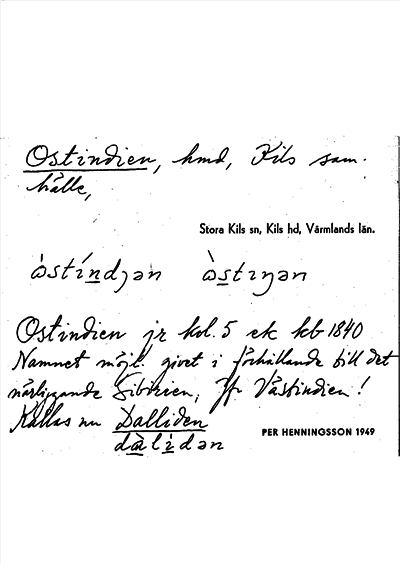 Ostindien, hmd, Kils sam-
hälle,
Stora Kils sn, Kils hd, Värmlands län.
òstíndɟən òstıŋən
Ostindien jr kvl. 5 ek kb 1840
Namnet möjl. givet i förhållande till det
närliggande Sibirien, Jfr Västindien!
Kallas nu Dalliden
dàlìdən
PER HENNINGSSON 1949